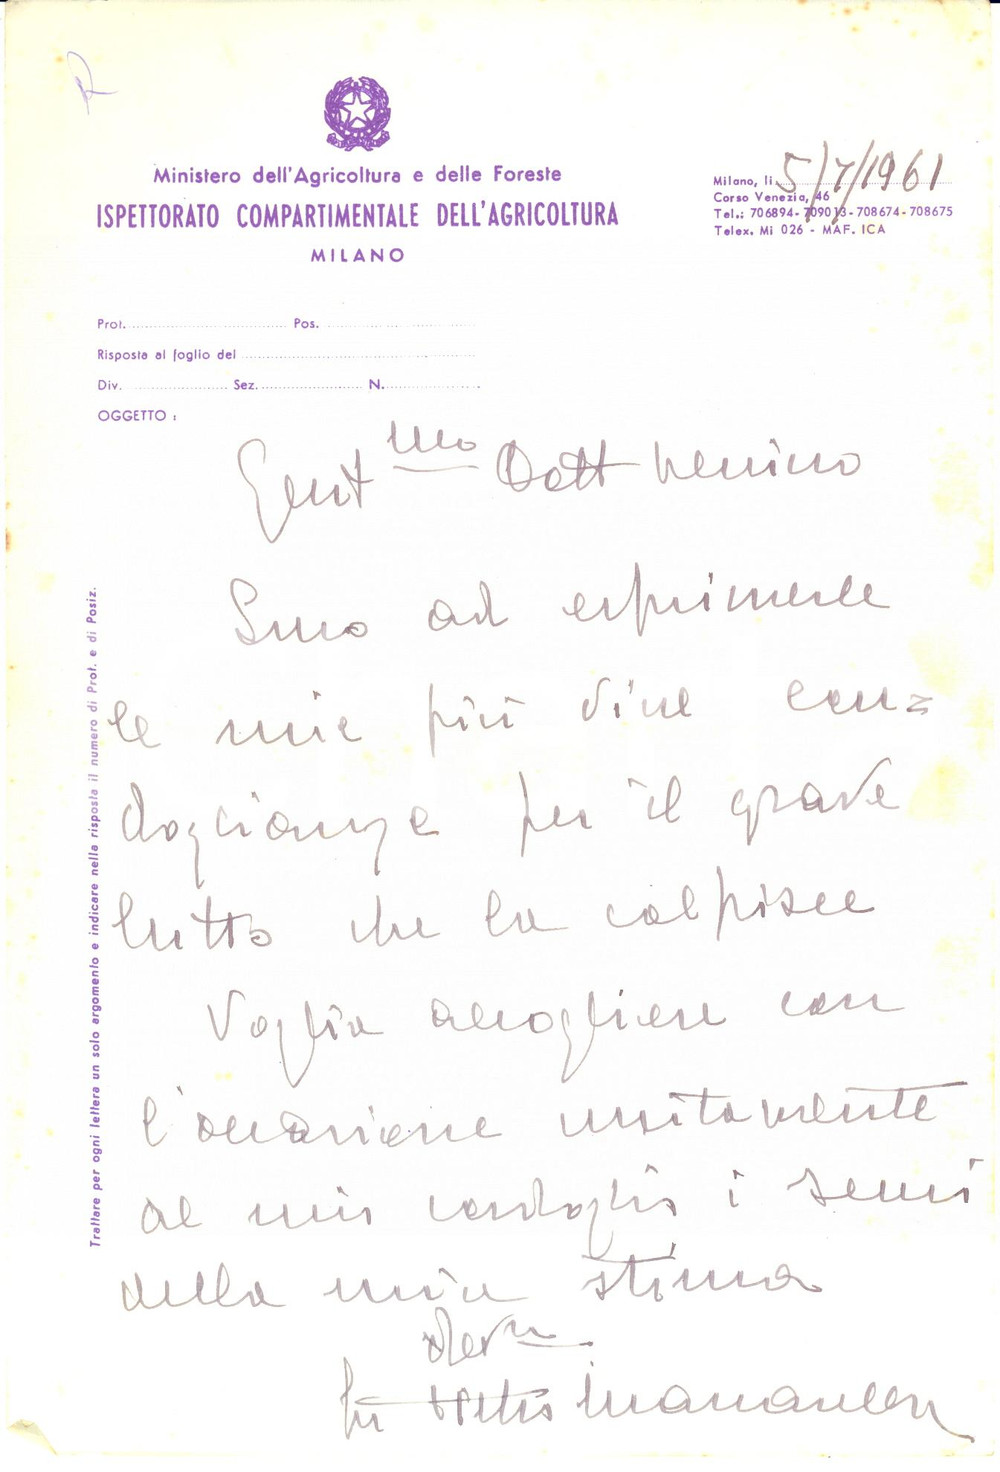 Ministero dell'Agricoltura e delle Foreste
ISPETTORATO COMPARTIMENTALE DELL'AGRICOLTURA
MILANO
Milano, li 5/7/1961
Corso Venezia, 46
Tel.: 706894-709013-708674-708675
Telex. Mi 026 - MAF. ICA
Prot. Pos.
Risposta al foglio del
Div. Sez. N.
OGGETTO :
Trattare per ogni lettera un solo argomento e indicare nella risposta il numero di Prot. e di Posiz.
Gent mo Dott
Sono ad esprimerle
le mie più vive con=
doglianze per il grave
lutto che la colpisce
Voglia accogliere con
l'occasione unitamente
al mio cordoglio i sensi
della mia stima